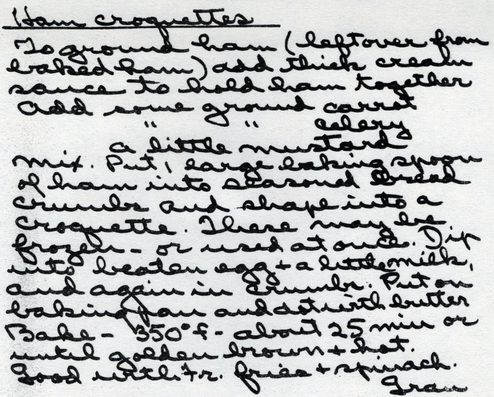 Ham croquettes
To ground ham (leftover from
baked ham) add thick cream
sauce to hold ham together
Add some ground carrot
" " celery
a little mustard
mix. Put 1 large baking spoon
of ham into seasoned bread
crumbs and shape into a
croquette. These may be
frozen - or used at once. Dip
into beaten egg + a little milk,
and again in crumbs. Put on
baking pan and dot with butter
Bake - 350°f - about 25 min or
until golden brown + hot.
Good with Fr. fries + spinach.
Gran